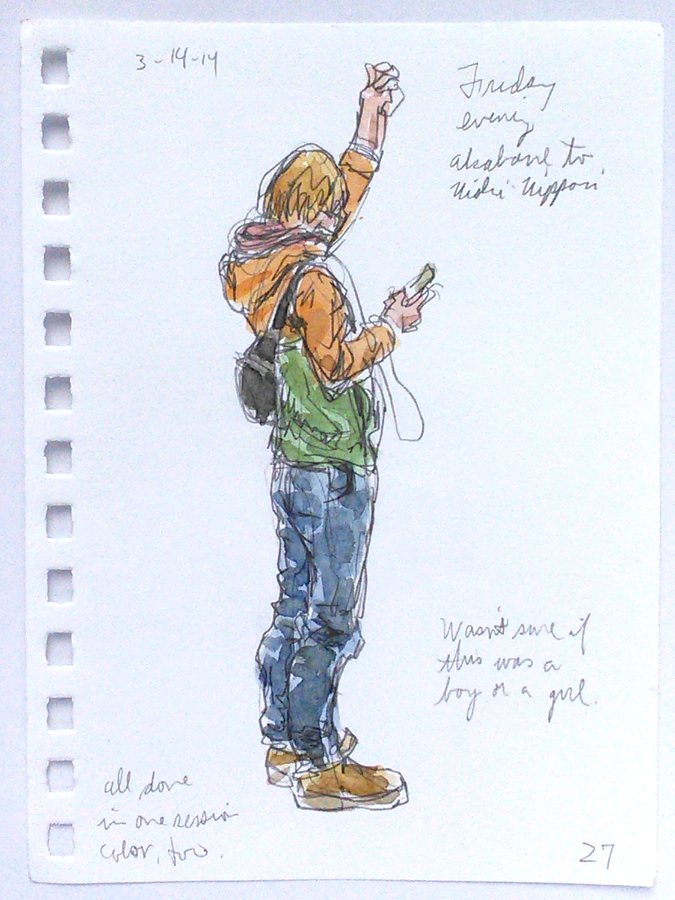 3-14-14
Friday
evening
akabane to
Nishi-Nippori
Wasn't sure if
this was a
boy or a girl.
all done
in one session
color, too.
27